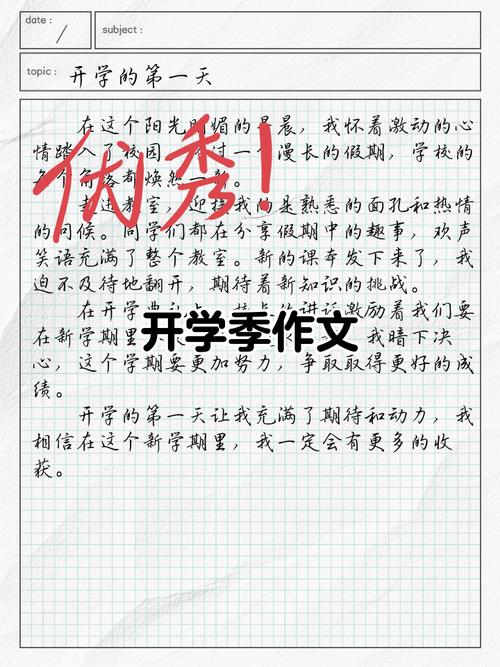 date :
/
subject :
topic : 开学的第一天
在这个阳光明媚的早晨，我怀着激动的心
情踏入了校园。过一个漫长的假期，学校的
每个角落都焕然一新。
走进教室，迎接我的是熟悉的面孔和热情
的问候。同学们都在分享假期中的趣事，欢声
笑语充满了整个教室。新的课本发下来了，我
迫不及待地翻开，期待着新知识的挑战。
在开学典礼上，校长的讲话激励着我们要
在新学期里
我暗下决
心，这个学期要更加努力，争取取得更好的成
绩。
开学的第一天让我充满了期待和动力，我
相信在这个新学期里，我一定会有更多的收
获。
优秀！
开学季作文